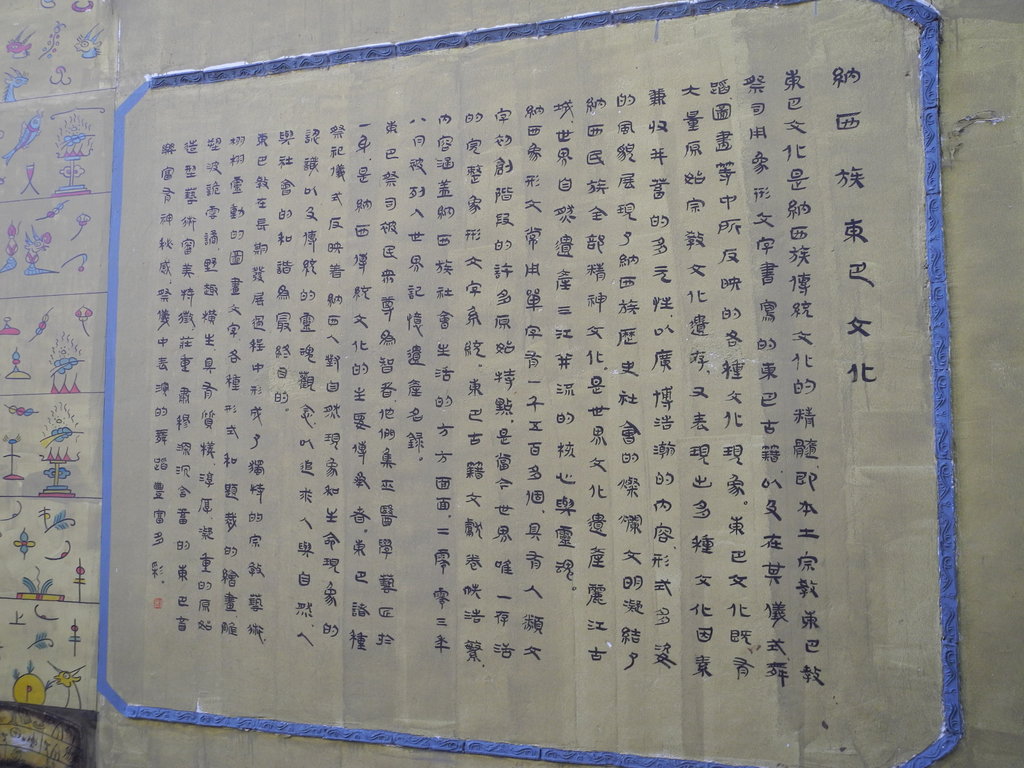 納西族東巴文化
東巴文化是納西族傳統文化的精髓，即本土宗教東巴教
祭司用象形文字書寫的東巴古籍以及在其儀式舞
蹈，圖畫等中所反映的各種文化現象。東巴文化既有
大量原始宗教文化遺存，又表現出多種文化因素
兼收并蓄的多元性，以廣博浩瀚的内容，形式多姿
的風貌展現了納西族歷史社會的燦爛文明，凝結了
納西民族全部精神文化，是世界文化遺産麗江古
城，世界自然遺産三江并流的核心與靈魂。
納西象形文常用單字有一千五百多個，具有人類文
字初創階段的許多原始特點，是當今世界唯一存活
的完整象形文字系統。東巴古籍文獻卷帙浩繁，
内容涵蓋納西族社會生活的方方面面，二零零三年
八月被列入世界記憶遺産名録。
東巴祭司被民衆尊為智者，他們集巫醫學藝匠於
一身，是納西傳統文化的主要傳承者。東巴諸種
祭祀儀式反映着納西人對自然現象和生命現象的
認識以及傳統的靈魂觀念，以追求人與自然，人
與社會的和諧為最終目的。
東巴教在長期發展過程中形成了獨特的宗教藝術，
栩栩靈動的圖畫文字，各種形式和題裁的繪畫雕
塑波詭雲譎，野趣横生，具有質樸，淳厚凝重的原始
造型藝術審美特徵，莊重肅穆深沉含蓄的東巴音
樂富有神秘感，祭儀中表演的舞蹈豐富多彩。